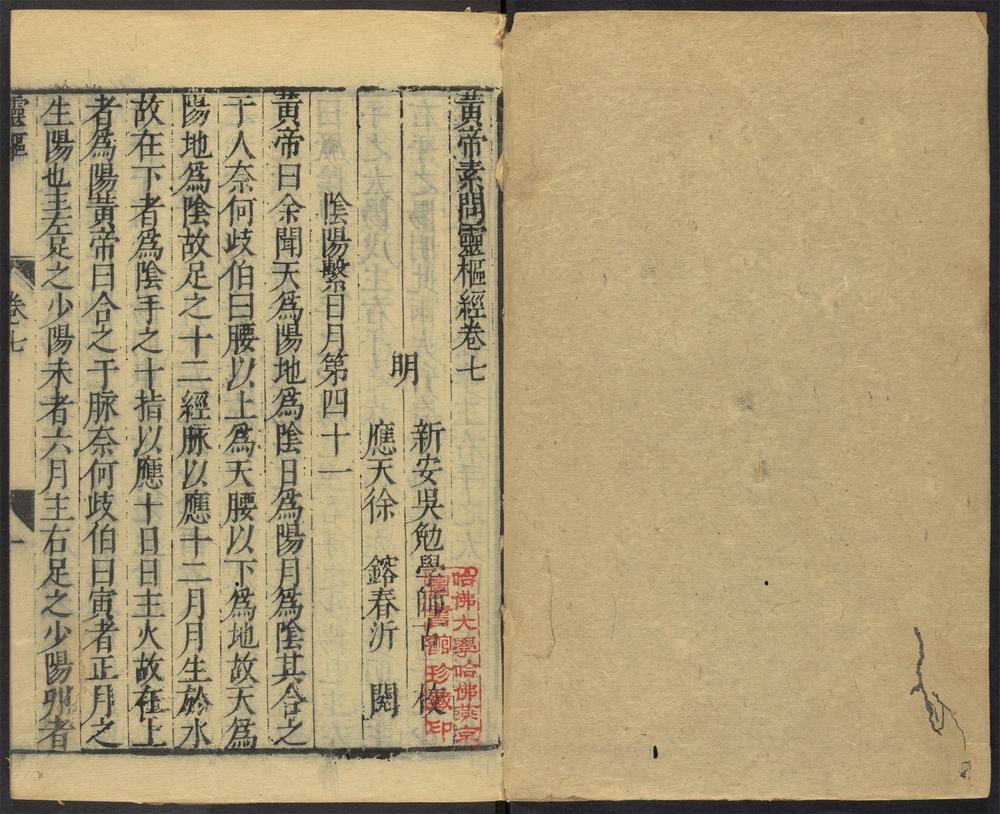 黃帝素問靈樞經卷七
明
新安吳勉學師古 校
應天徐 鎔春沂 閱
陰陽繫日月第四十一
黃帝曰余聞天爲陽地爲陰日爲陽月爲陰其合之
于人奈何歧伯曰腰以上爲天腰以下爲地故天爲
陽地爲陰故足之十二經脉以應十二月月生於水
故在下者爲陰手之十指以應十日日主火故在上
者爲陽黃帝曰合之于脉奈何歧伯曰寅者正月之
生陽也主左足之少陽未者六月主右足之少陽夘者
靈樞 卷七 一
哈佛大學哈佛燕京
圖書館珍藏印